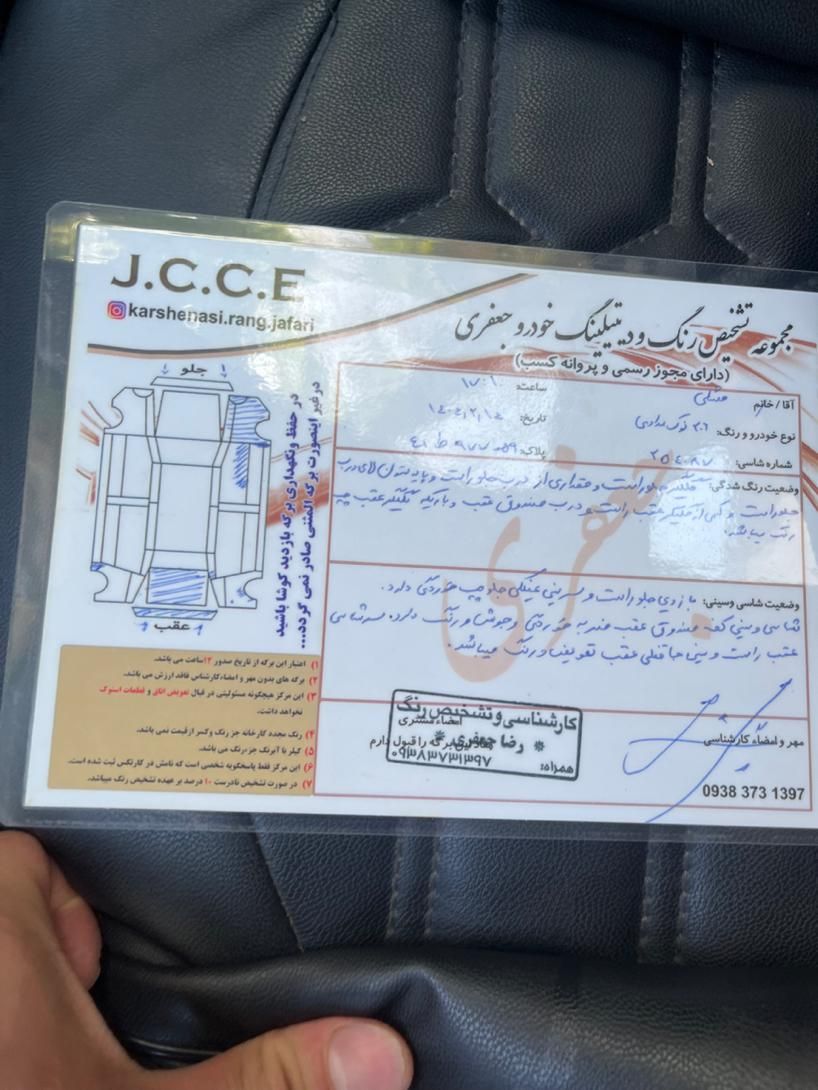 J.C.C.E
karshenasi.rang.jafari
مجموعه تشخیص رنگ و دیتیلینگ خودرو جعفری
(دارای مجوز رسمی و پروانه کسب)
آقا / خانم
ساعت: ۱۷:۱
نوع خودرو و رنگ: ۲۰۶ نوک مدادی
تاریخ:
شماره شاسی:
پلاک:
وضعیت رنگ شدگی: گلگیر جلو راست و مقداری از درب جلو راست و پایه ستون لای درب
جلو راست و کمی از گلگیر عقب راست و درب صندوق عقب و باریکه گلگیر عقب چپ
رنگ میباشد.
وضعیت شاسی وسینی: بازویی جلو راست و سرسینی جلو چپ خوردگی دارد.
شاسی و سینی کف صندوق عقب ضربه خوردگی و جوش و رنگ دارد. سرشاسی
عقب راست و سینی عقب تعویض و رنگ میباشد.
مهر و امضاء کارشناسی
امضاء مشتری
را قبول دارم
کارشناسی و تشخیص رنگ
رضا جعفری
همراه: ۰۹۳۸۳۷۳۱۳۹۷
0938 373 1397
جلو
عقب
در حفظ ونگهداری برگه بازدید کوشا باشید
در غیر اینصورت برگه المثنی صادر نمی گردد...
۱) اعتبار این برگه از تاریخ صدور ۱۲ساعت می باشد.
۲) برگه های بدون مهر و امضاءکارشناس فاقد ارزش می باشد.
۳) این مرکز هیچگونه مسئولیتی در قبال تعویض اتاق و قطعات استوک
نخواهد داشت.
۴) رنگ مجدد کارخانه جز رنگ وکسر از قیمت نمی باشد.
۵) کیلر با آبرنگ جز رنگ می باشد.
۶) این مرکز فقط پاسخگویه شخصی است که نامش در کارتکس ثبت شده است.
۷) در صورت تشخیص نادرست ۱۰ درصد بر عهده تشخیص رنگ میباشد.